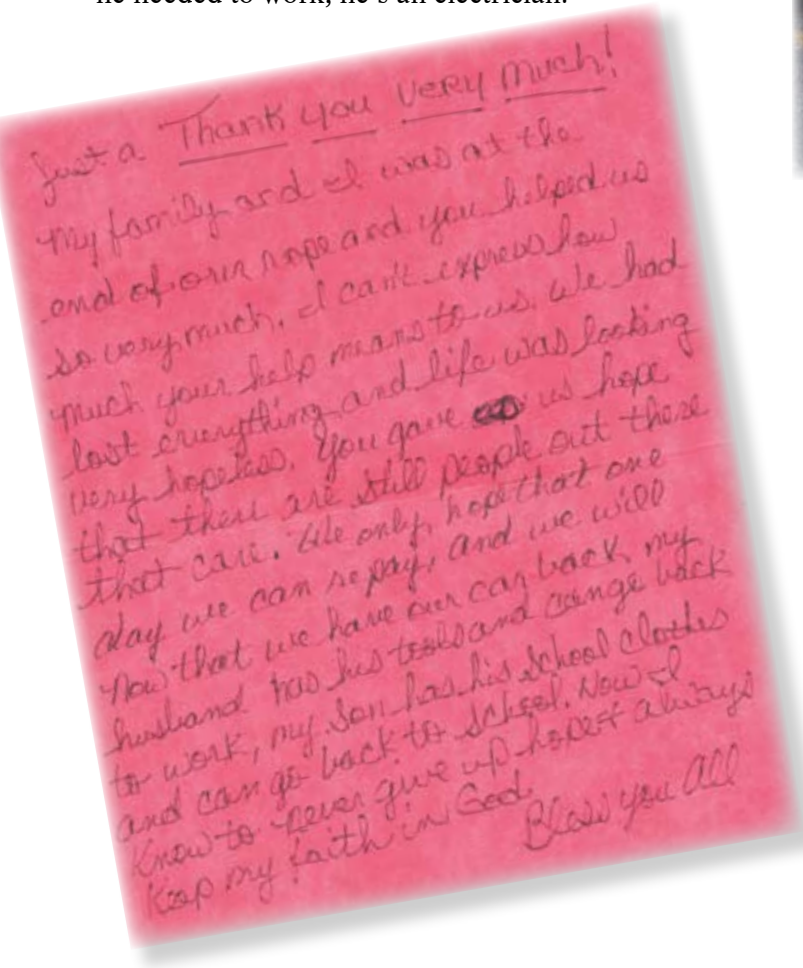 he needed to work, he's an electrician.
Just a Thank you very much!
My family and I was at the
end of our rope and you helped us
so very much. I can't express how
much your help means to us. We had
lost everything and life was looking
very hopeless. You gave us hope
that there are still people out there
that care. We only hope that one
day we can repay, and we will
Now that we have our car back, my
husband has his tools and can go back
to work, my son has his school clothes
and can go back to school. Now I
know to never give up hope & always
keep my faith in God.
Bless you All